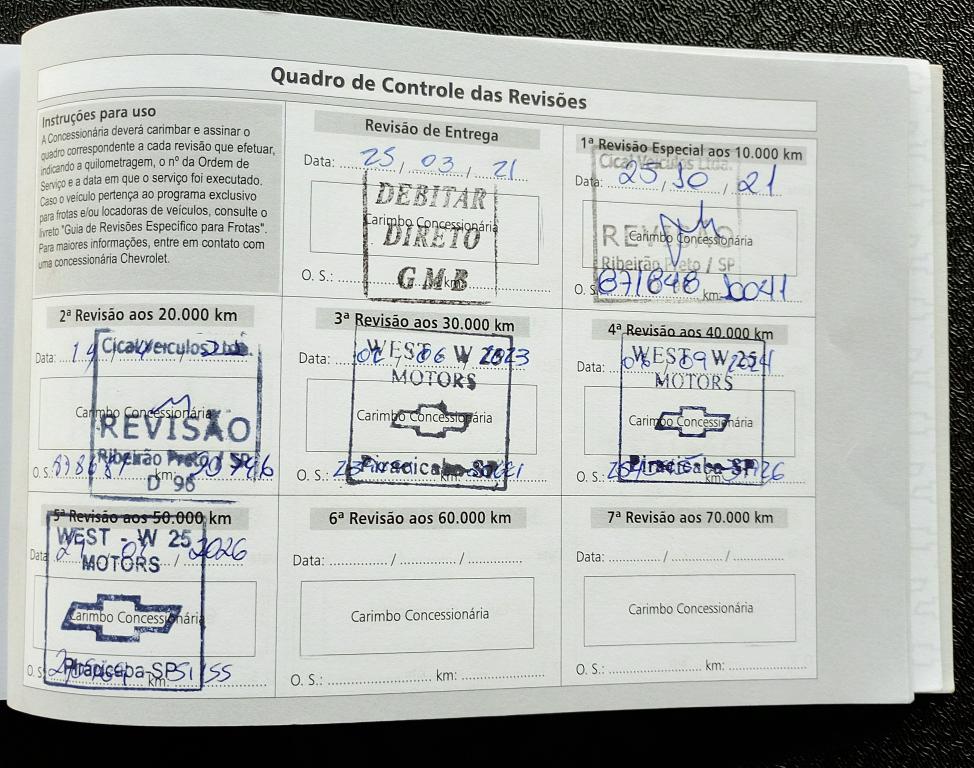 Quadro de Controle das Revisões
Instruções para uso
A Concessionária deverá carimbar e assinar o
quadro correspondente a cada revisão que efetuar,
indicando a quilometragem, o nº da Ordem de
Serviço e a data em que o serviço foi executado.
Caso o veículo pertença ao programa exclusivo
para frotas e/ou locadoras de veículos, consulte o
livreto "Guia de Revisões Específico para Frotas".
Para maiores informações, entre em contato com
uma concessionária Chevrolet.
Revisão de Entrega
Data: 25 / 03 / 21
DEBITAR
Carimbo Concessionária
DIRETO
GMB
O. S.: km:
1ª Revisão Especial aos 10.000 km
Cical Veículos Ltda.
Data: 25 / 10 / 21
REVISÃO
Carimbo Concessionária
Ribeirão Preto / SP
O. S. 871848 km: 10041
2ª Revisão aos 20.000 km
Cical Veículos Ltda.
Data:
Carimbo Concessionária
REVISÃO
Ribeirão Preto / SP
O. S. km:
D 96
3ª Revisão aos 30.000 km
WEST W 25
Data: 06 / 2023
MOTORS
Carimbo Concessionária
Piracicaba-SP
O. S.: km:
4ª Revisão aos 40.000 km
WEST W 25
Data: 09 / 2024
MOTORS
Carimbo Concessionária
Piracicaba-SP
O. S.: km:
5ª Revisão aos 50.000 km
WEST - W 25
Data / 2026
MOTORS
Carimbo Concessionária
Piracicaba-SP
O. S.: km: 51155
6ª Revisão aos 60.000 km
Data: / /
Carimbo Concessionária
O. S.: km:
7ª Revisão aos 70.000 km
Data: / /
Carimbo Concessionária
O. S.: km: